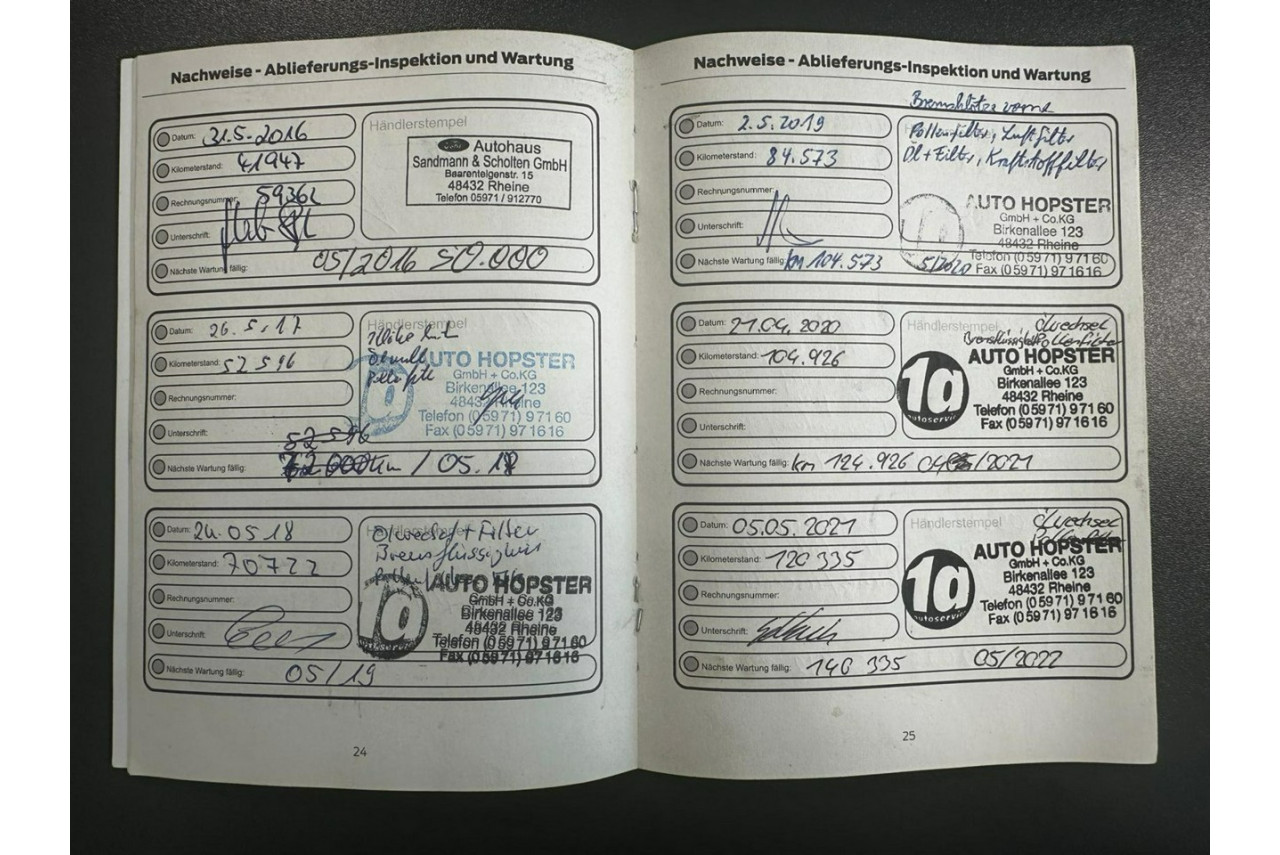 Nachweise - Ablieferungs-Inspektion und Wartung
Datum: 31.5-2016
Kilometerstand: 41947
Rechnungsnummer: 59362
Unterschrift:
Nächste Wartung fällig: 05/2016 50.000
Händlerstempel
Ford Autohaus
Sandmann & Scholten GmbH
Baarentelgenstr. 15
48432 Rheine
Telefon 05971 / 912770
Datum: 26.5.17
Kilometerstand: 52 596
Rechnungsnummer:
Unterschrift:
52 596
Nächste Wartung fällig: 72 000 km / 05.18
Händlerstempel
AUTO HOPSTER
GmbH + Co.KG
Birkenallee 123
48432 Rheine
Telefon (05971) 97160
Fax (05971) 971616
Datum: 24.05.18
Kilometerstand: 70722
Rechnungsnummer:
Unterschrift:
Nächste Wartung fällig: 05/19
Händlerstempel
Ölwechsel + Filter
Bremsflüssigkeit
AUTO HOPSTER
GmbH + Co.KG
Birkenallee 123
48432 Rheine
Telefon (05971) 97160
Fax (05971) 971616
24
Nachweise - Ablieferungs-Inspektion und Wartung
Bremsklötze vorne
Datum: 2.5.2019
Kilometerstand: 84.573
Rechnungsnummer:
Unterschrift:
Nächste Wartung fällig: km 104.573 5/2020
Händlerstempel
Pollenfilter, Luftfilter
Öl + Filter, Kraftstofffilter
AUTO HOPSTER
GmbH + Co.KG
Birkenallee 123
48432 Rheine
Telefon (05971) 97160
Fax (05971) 971616
Datum: 21.04.2020
Kilometerstand: 104.926
Rechnungsnummer:
Unterschrift:
Nächste Wartung fällig: km 124.926 04/2021
Händlerstempel
Ölwechsel
Pollenfilter
1a autoservice
AUTO HOPSTER
GmbH + Co.KG
Birkenallee 123
48432 Rheine
Telefon (05971) 97160
Fax (05971) 971616
Datum: 05.05.2021
Kilometerstand: 120 335
Rechnungsnummer:
Unterschrift:
Nächste Wartung fällig: 140 335 05/2022
Händlerstempel
Ölwechsel
1a autoservice
AUTO HOPSTER
GmbH + Co.KG
Birkenallee 123
48432 Rheine
Telefon (05971) 97160
Fax (05971) 971616
25